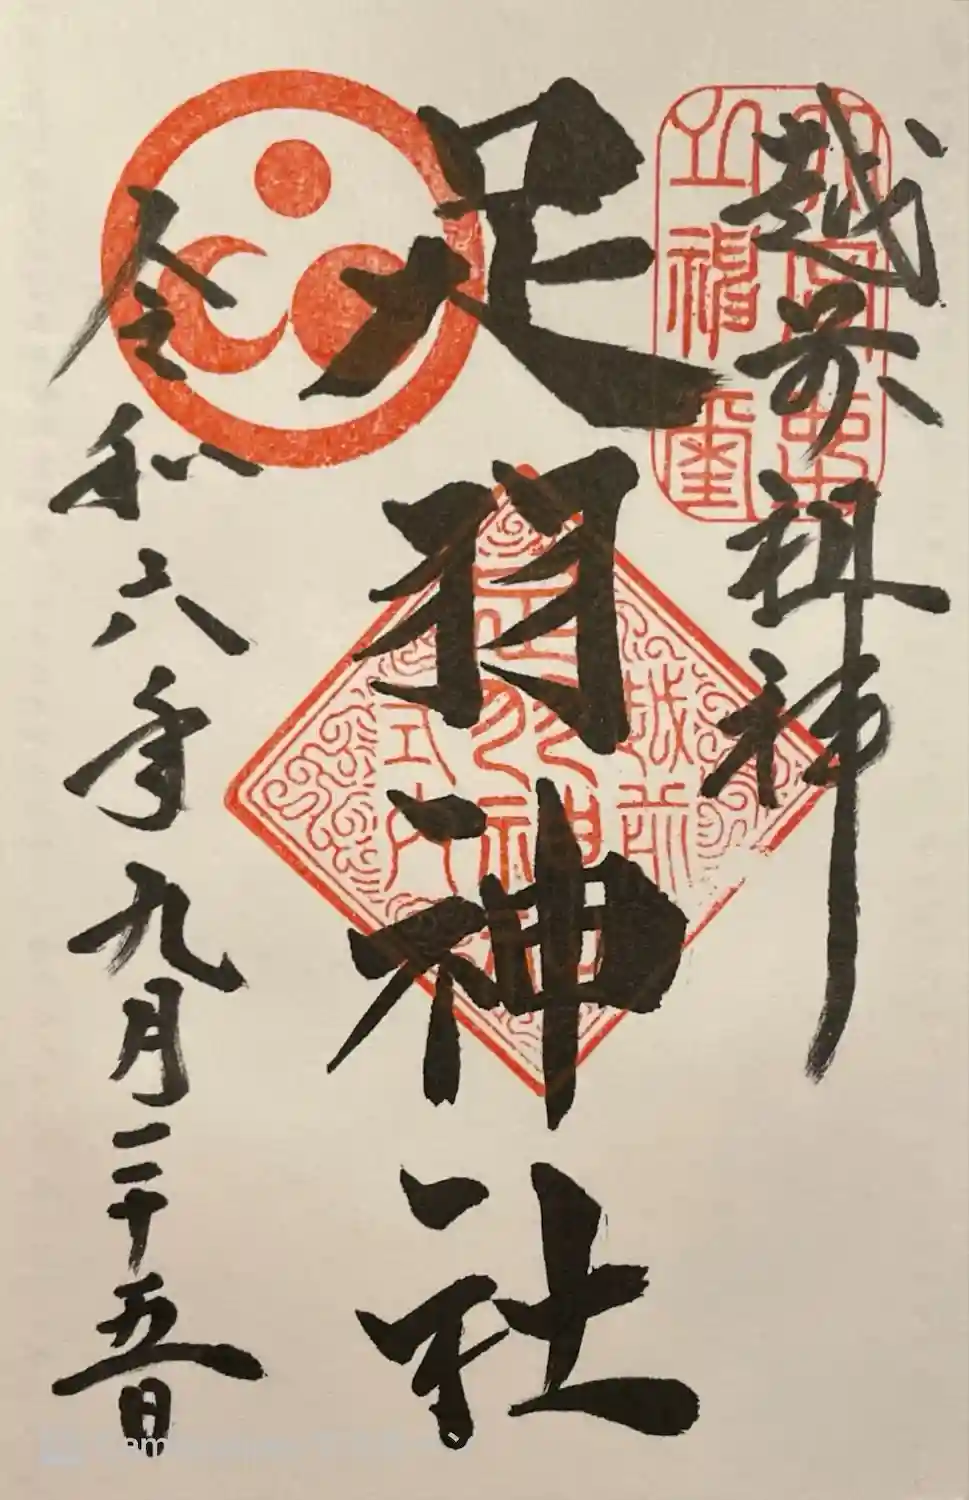 越前祖神
足羽神社
令和六年九月二十五日
越前
足羽神社
式内